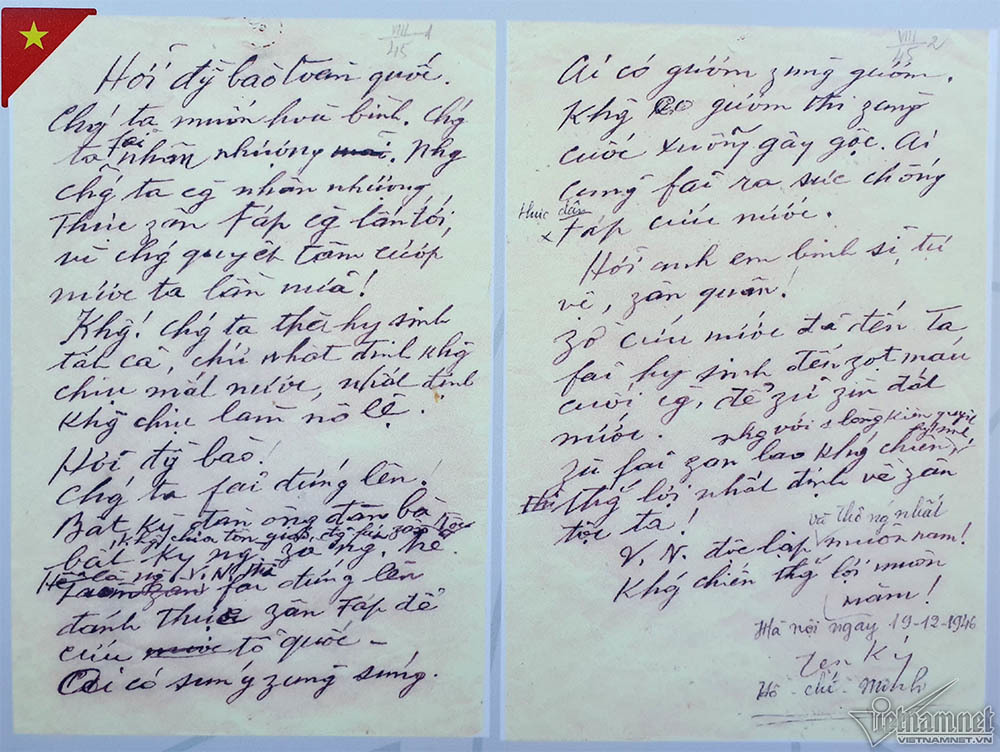 VIII 1
45
Hỡi đỹ bào toàn quốc.
Chg' ta muốn hoà bình. Chg'
ta fải nhân nhượng. Nhg
chg' ta cg nhân nhượng,
Thực zân Fáp cg lấn tới,
vì chg' quyết tâm cướp
nước ta lần nữa!
Khg! Chg' ta thà hy sinh
tất cả, chứ nhất định khg
chịu mất nước, nhất định
khg chịu làm nô lệ.
Hỡi đỹ bào!
Chg' ta fải đứng lên!
Bất kỳ đàn ông đàn bà
bất kỳ ng zà ng trẻ.
khg chia tôn giáo, đg fái, zân tộc
Hễ là ng V.N. thì
fải đứng lên
đánh thực zân Fáp để
cứu tổ quốc –
Ai có súng zùng súng.
VIII 2
45
Ai có gươm zùng gươm.
Khg có gươm thì zùng
cuốc xuổng gậy gộc. Ai
cũng fải ra sức chống
thực dân
x Fáp cứu nước.
Hỡi anh em binh sĩ, tự
vệ, zân quân!
Zờ cứu nước đã đến. Ta
fải hy sinh đến zọt máu
cuối cg, để zữ zìn đất
nước.
Zù fải zan lao khg' chiến,
nhg với 1 lòng kiên quyết
hy sinh,
Thì thg' lợi nhất định về zân
tộc ta!
và thống nhất
V.N. độc lập muôn năm!
Khg' chiến thg' lợi muôn
năm!
Hà nội ngày 19-12-1946
Hồ-chí-Minh
vietnamnet
VIETNAMNET.VN